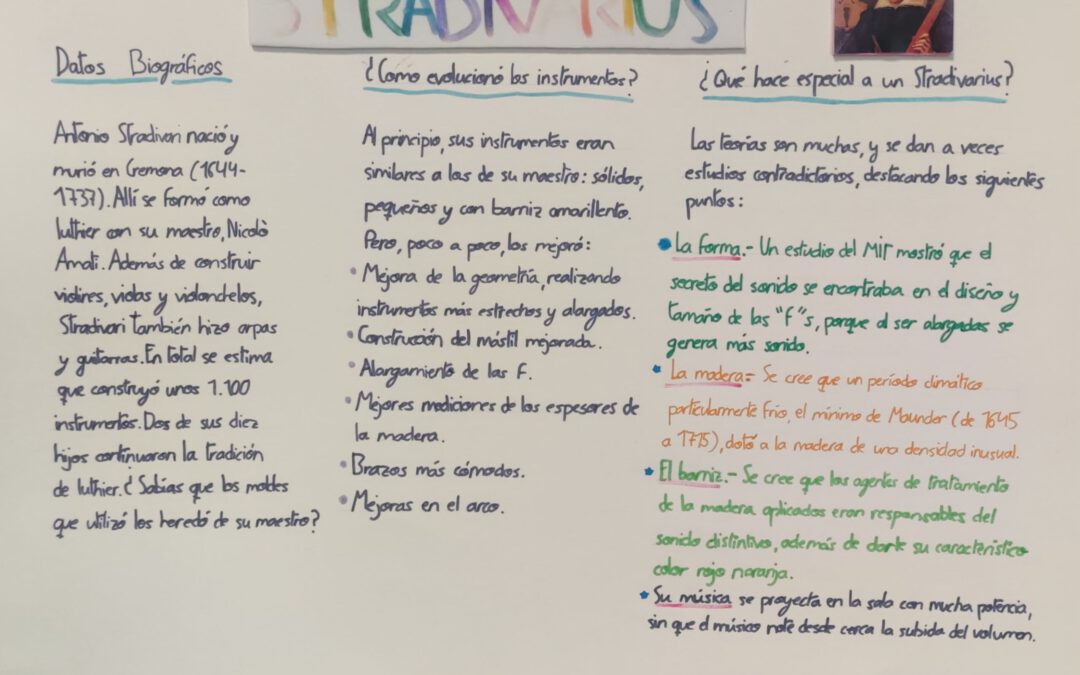 STRADIVARIUS
Datos Biográficos
Antonio Stradivari nació y
murió en Cremona (1644-
1737). Allí se formó como
luthier con su maestro, Nicolò
Amati. Además de construir
violines, violas y violonchelos,
Stradivari también hizo arpas
y guitarras. En total se estima
que construyó unos 1.100
instrumentos. Dos de sus diez
hijos continuaron la tradición
de luthier. ¿Sabías que los moldes
que utilizó los heredó de su maestro?
¿Como evolucionó los instrumentos?
Al principio, sus instrumentos eran
similares a los de su maestro: sólidos,
pequeños y con barniz amarillento.
Pero, poco a poco, los mejoró:
• Mejora de la geometría, realizando
instrumentos más estrechos y alargados.
• Construcción del mástil mejorada.
• Alargamiento de las F.
• Mejores mediciones de los espesores de
la madera.
• Brazos más cómodos.
• Mejoras en el arco.
¿Qué hace especial a un Stradivarius?
Las teorías son muchas, y se dan a veces
estudios contradictorios, destacando los siguientes
puntos:
• La forma.- Un estudio del MIT mostró que el
secreto del sonido se encontraba en el diseño y
tamaño de las "f"s, porque al ser alargadas se
genera más sonido.
• La madera.- Se cree que un período climático
particularmente frío, el mínimo de Maunder (de 1645
a 1715), dotó a la madera de una densidad inusual.
• El barniz.- Se cree que los agentes de tratamiento
de la madera aplicados eran responsables del
sonido distintivo, además de darle su característico
color rojo naranja.
• Su música se proyecta en la sala con mucha potencia,
sin que el músico note desde cerca la subida del volumen.